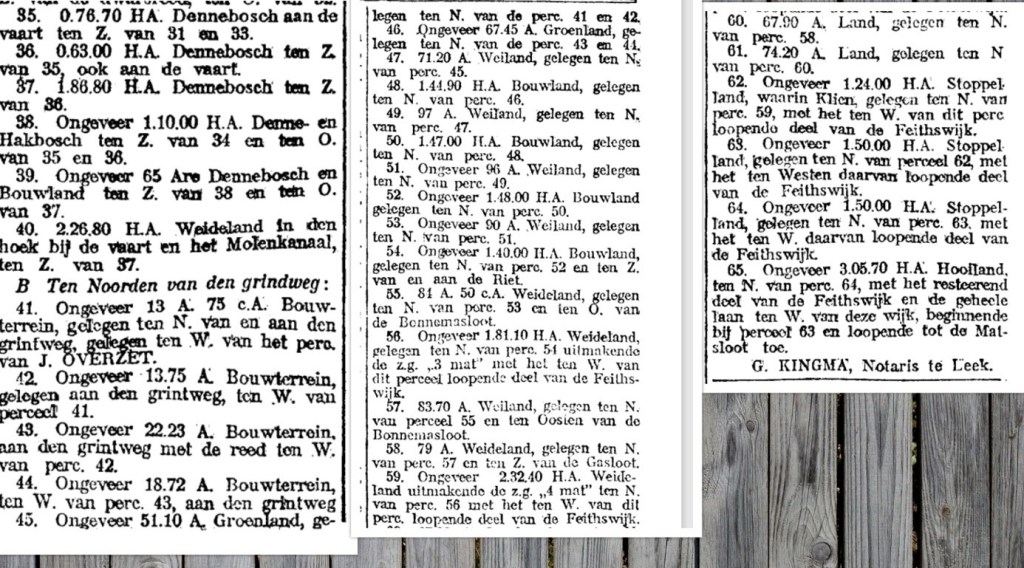 35. 0.76.70 HA. Dennebosch aan de
vaart ten Z. van 31 en 33.
36. 0.63.00 H.A. Dennebosch ten Z.
van 35, ook aan de vaart.
37. 1.86.80 H.A. Dennebosch ten Z.
van 36.
38. Ongeveer 1.10.00 H.A. Denne- en
Hakbosch ten Z. van 34 en ten O.
van 35 en 36.
39. Ongeveer 65 Are Dennebosch en
Bouwland ten Z. van 38 en ten O.
van 37.
40. 2.26.80 H.A. Weideland in den
hoek bij de vaart en het Molenkanaal,
ten Z. van 37.
B Ten Noorden van den grindweg:
41. Ongeveer 13 A. 75 c.A. Bouw-
terrein, gelegen ten N. van en aan den
grintweg, gelegen ten W. van het perc.
van J. OVERZET.
42. Ongeveer 13.75 A. Bouwterrein,
gelegen aan den grintweg, ten W. van
perceel 41.
43. Ongeveer 22.23 A. Bouwterrein,
aan den grintweg met de reed ten W.
van perc. 42.
44. Ongeveer 18.72 A. Bouwterrein,
ten W. van perc. 43, aan den grintweg
45. Ongeveer 51.10 A. Groenland, ge-
legen ten N. van de perc. 41 en 42.
46. Ongeveer 67.45 A. Groenland, ge-
legen ten N. van de perc. 43 en 44.
47. 71.20 A. Weiland, gelegen ten N.
van perc. 45.
48. 1.44.90 H.A. Bouwland, gelegen
ten N. van perc. 46.
49. 97 A. Weiland, gelegen ten N.
van perc. 47.
50. 1.47.00 H.A. Bouwland, gelegen
ten N. van perc. 48.
51. Ongeveer 96 A. Weiland, gelegen
ten N. van perc. 49.
52. Ongeveer 1.48.00 H.A. Bouwland
gelegen ten N. van perc. 50.
53. Ongeveer 90 A. Weiland, gelegen
ten N. van perc. 51.
54. Ongeveer 1.40.00 H.A. Bouwland,
gelegen ten N. van perc. 52 en ten Z.
van en aan de Riet.
55. 84 A. 50 c.A. Weideland, gelegen
ten N. van perc. 53 en ten O. van
de Bonnemasloot.
56. Ongeveer 1.81.10 H.A. Weideland,
gelegen ten N. van perc. 54 uitmakende
de z.g. „3 mat” met het ten W. van
dit perceel loopende deel van de Feiths-
wijk.
57. 83.70 A. Weiland, gelegen ten N.
van perceel 55 en ten Oosten van de
Bonnemasloot.
58. 79 A. Weideland, gelegen ten N.
van perc. 57 en ten Z. van de Gasloot.
59. Ongeveer 2.32.40 H.A. Weide-
land uitmakende de z.g. „4 mat” ten N.
van perc. 56 met het ten W. van dit
perc. loopende deel van de Feithswijk.
60. 67.90 A. Land, gelegen ten N.
van perc. 58.
61. 74.20 A. Land, gelegen ten N
van perc. 60.
62. Ongeveer 1.24.00 H.A. Stoppel-
land, waarin Klien, gelegen ten N. van
perc. 59, met het ten W. van dit perc
loopende deel van de Feithswijk.
63. Ongeveer 1.50.00 H.A. Stoppel-
land, gelegen ten N. van perceel 62, met
het ten Westen daarvan loopende deel
van de Feithswijk.
64. Ongeveer 1.50.00 H.A. Stoppel-
land, gelegen ten N. van perc. 63. met
het ten W. daarvan loopende deel van
de Feithswijk.
65. Ongeveer 3.05.70 H.A. Hooiland,
ten N. van perc. 64, met het resteerend
deel van de Feithswijk en de geheele
laan ten W. van deze wijk, beginnende
bij perceel 63 en loopende tot de Mat-
sloot toe.
G. KINGMA, Notaris te Leek.